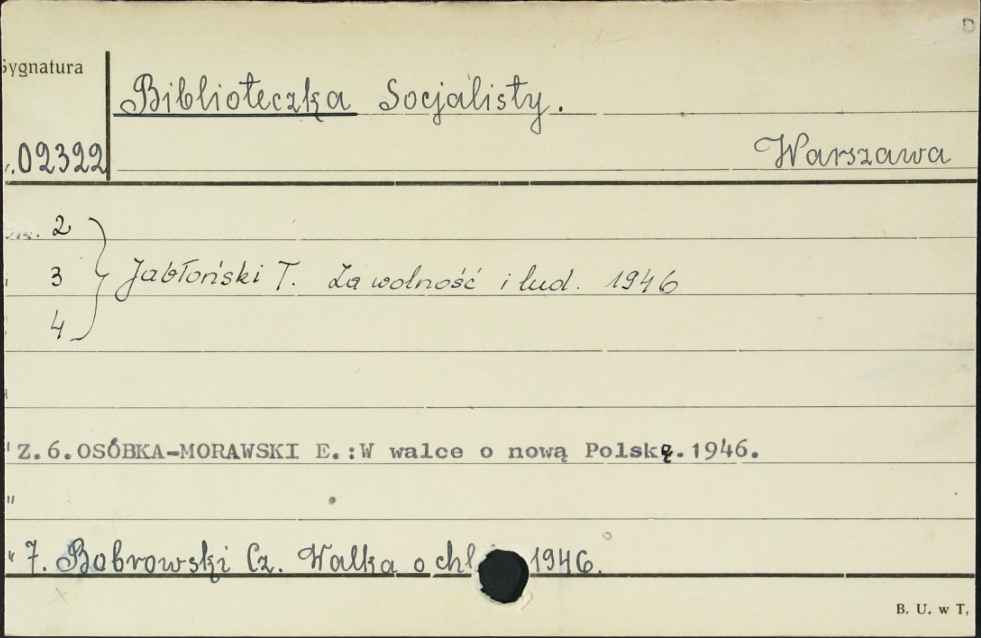 Sygnatura
Biblioteczka Socjalisty.
02322
Warszawa
2
3 Jabłoński T. Za wolność i lud. 1946
4
Z.6.OSÓBKA-MORAWSKI E.:W walce o nową Polskę.1946.
"
" 7. Bobrowski Cz. Walka o 1946.
B. U. w T.